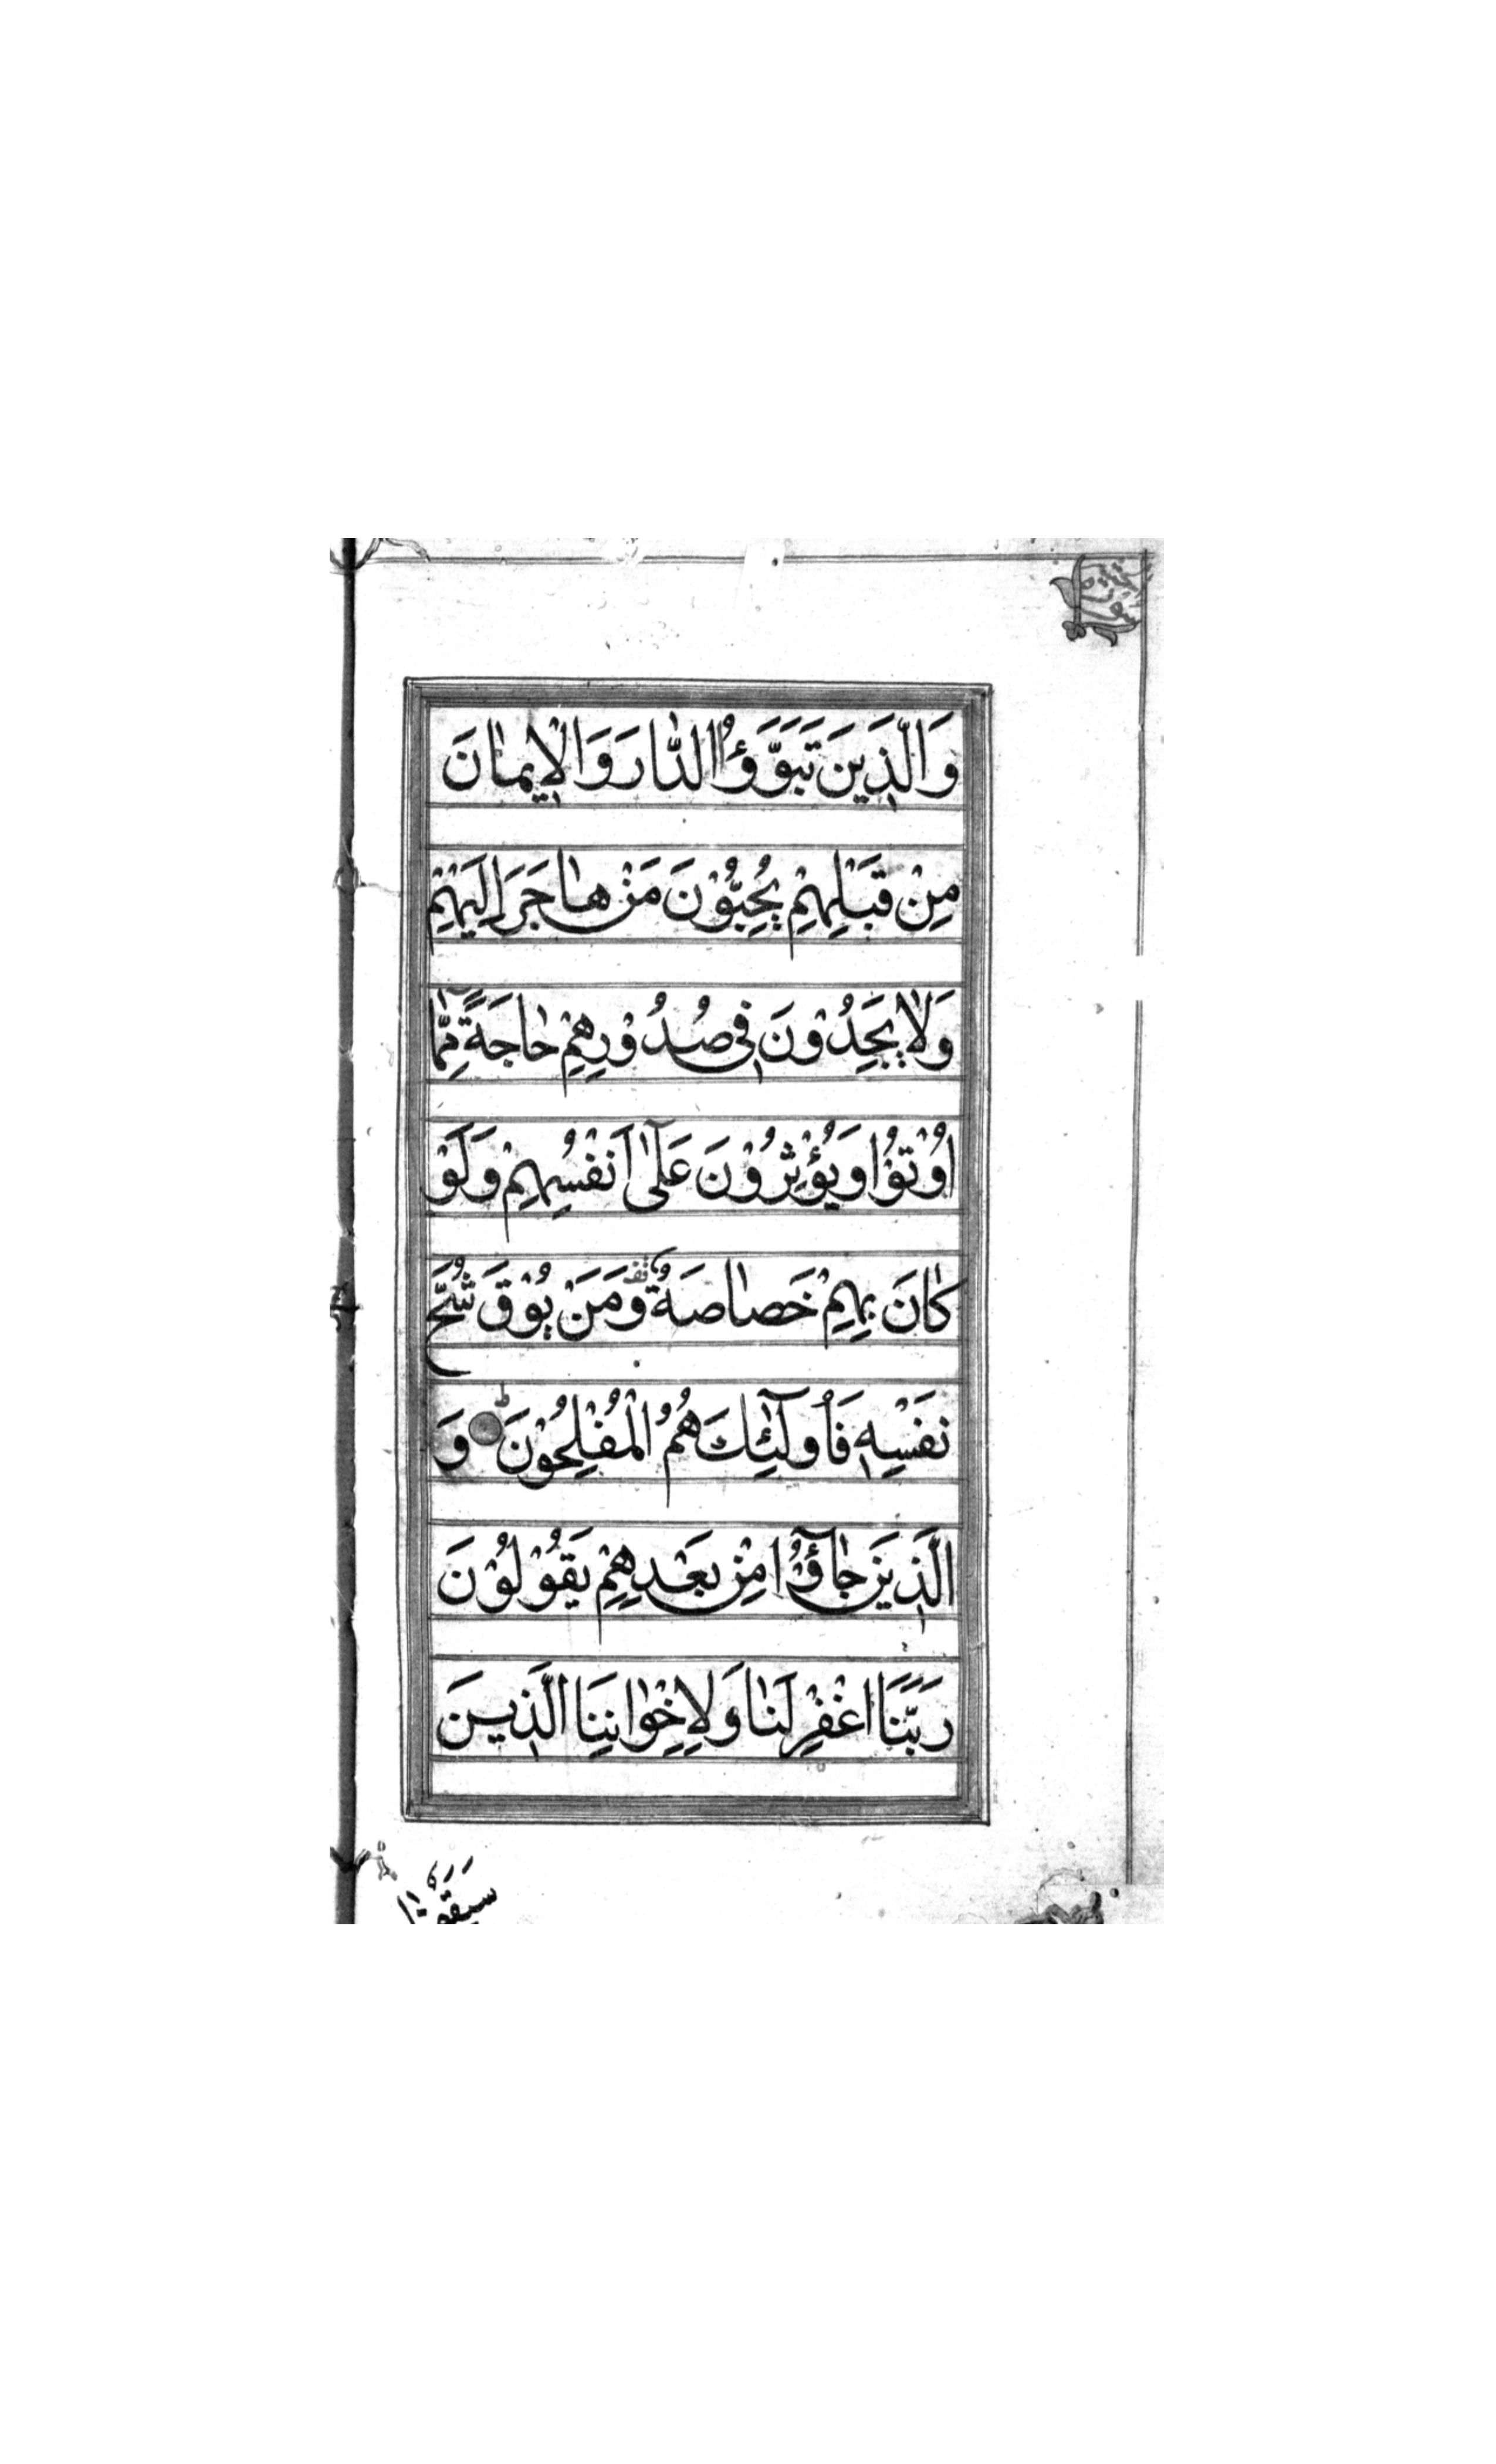 وَالَّذِينَ تَبَوَّؤُا الدَّارَ وَالْاِيمَانَ
مِنْ قَبْلِهِمْ يُحِبُّوْنَ مَنْ هَاجَرَ اِلَيْهِمْ
وَلَا يَجِدُوْنَ فِي صُدُوْرِهِمْ حَاجَةً مِّمَّا
اُوْتُوْا وَيُؤْثِرُوْنَ عَلٰٓى اَنْفُسِهِمْ وَلَوْ
كَانَ بِهِمْ خَصَاصَةٌ وَمَنْ يُوْقَ شُحَّ
نَفْسِهٖ فَاُولٰٓئِكَ هُمُ الْمُفْلِحُوْنَ ط وَ
الَّذِيْنَ جَآؤُا مِنْ بَعْدِهِمْ يَقُوْلُوْنَ
رَبَّنَا اغْفِرْ لَنَا وَلِاِخْوَانِنَا الَّذِينَ
سَبَقُوْنَا